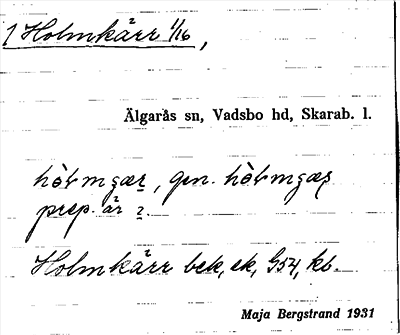 1 Holmkärr 1/16,
Älgarås sn, Vadsbo hd, Skarab. l.
gen.
prep. är 2.
Holmkärr bek, ek, G54, kb.
Maja Bergstrand 1931